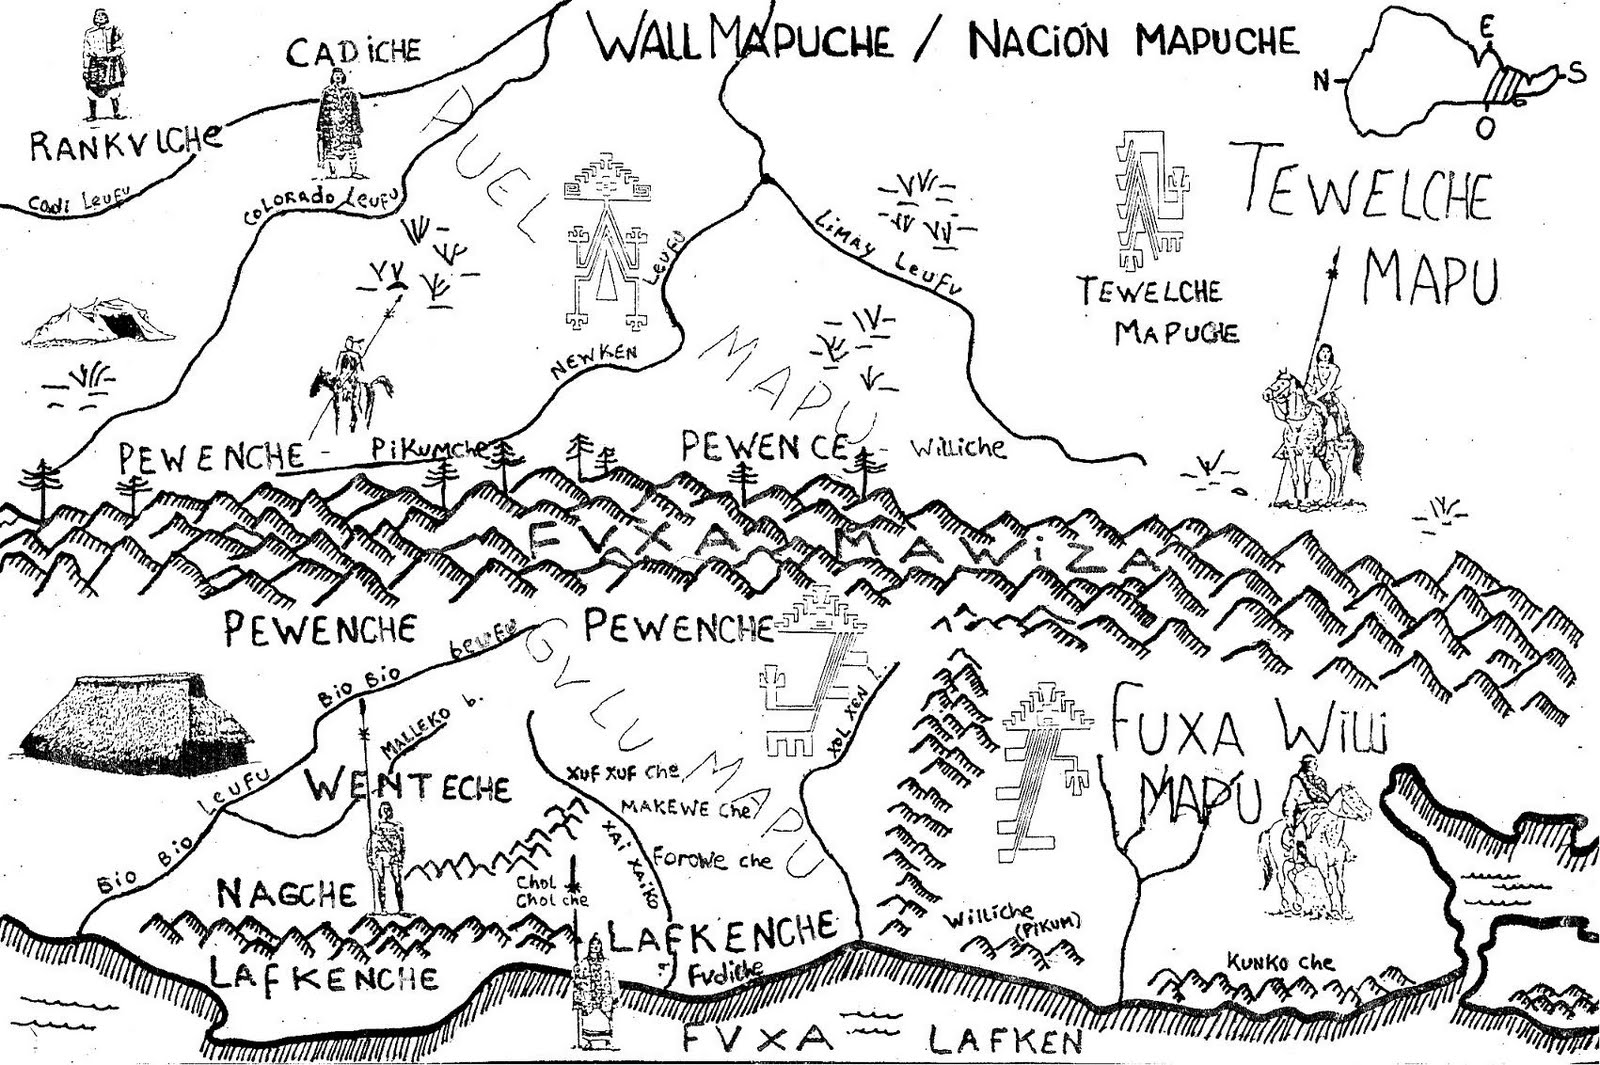 WALLMAPUCHE / NACIÓN MAPUCHE
E
N
S
O
CADiCHE
RANKVLCHE
Cadi Leufu
COLORADO LEUFU
PUEL
MAPU
LEUFU
NEWKEN
LiMAY LEUFU
TEWELCHE
MAPU
TEWELCHE
MAPUCHE
PEWENCHE - PiKUMche
PEWENCE - Williche
FVXA MAWiZA
PEWENCHE
PEWENCHE
GVLU MAPU
Bio Bio LEUFU
MALLEKO b.
LEUFU
Bio Bio
WENTECHE
XUF XUF Che
MAKEWE Che
XAi XAiKO
FOROWE che
Chol
Chol che
NAGCHE
LAFKENCHE
LAFKENCHE
Fudiche
XOL XEN L.
FUXA Willi
MAPU
Williche
(PiKUM)
KUNKO che
FVXA LAFKEN